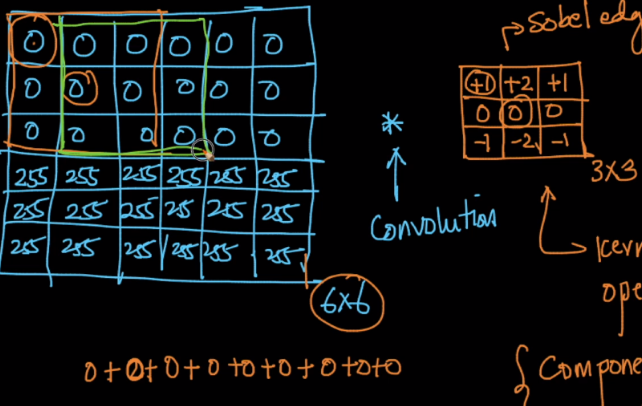 Sobel edg
0 0 0 0 0 0
0 0 0 0 0 0
0 0 0 0 0 0
255 255 255 255 255 255
255 255 255 255 255 255
255 255 255 255 255 255
6x6
*
Convolution
+1 +2 +1
0 0 0
-1 -2 -1
3x3
kern
ope
0+0+0+0+0+0+0+0+0
{ Compone